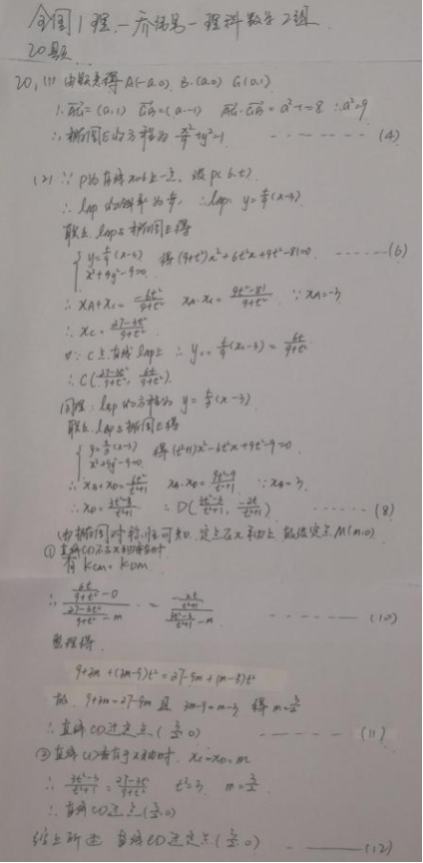 全国1理-乔伟男-理科数学2组
20题
20.(1) 由题意得 A(-a,0) B(a,0) G(0,1)
∴ AG=(a,1) GB=(a,-1) AG·GB=a²-1=8 ∴a²=9
∴椭圆E的方程为 x²/9+y²=1 ------(4)
(2) ∵ P为直线x=6上一点, 设P(6,t)
的斜率为
联立 与椭圆E得
x²+9y²-9=0 得(9+t²)x²+6t²x+9t²-81=0 ------(6)
∴ xA+xC=-6t²/(9+t²) xA·xC=(9t²-81)/(9+t²) ∵ xA=-3
∴ xC=(27-3t²)/(9+t²)
又∵ C在直线 上 =6t/(9+t²)
∴ C((27-3t²)/(9+t²), 6t/(9+t²))
同理: 的方程为 y=t/3(x-3)
联立 与椭圆E得
y=t/3(x-3)
x²+9y²-9=0 得(t²+1)x²-6t²x+9t²-9=0
∴ xB+xD=6t²/(t²+1) xB·xD=(9t²-9)/(t²+1) ∵xB=3
∴ xD=(3t²-3)/(t²+1) ∴ D((3t²-3)/(t²+1), -2t/(t²+1)) ------(8)
由椭圆对称性可知, 定点在x轴上, 故设定点M(m,0)
①直线CD不 x轴 时
有 kCM=kDM
∴ (6t/(9+t²)-0)/((27-3t²)/(9+t²)-m) = (-2t/(t²+1))/((3t²-3)/(t²+1)-m) ------(10)
整理得
9+3m+(3m-9)t²=27-9m+(m-3)t²
故 9+3m=27-9m 且 3m-9=m-3 得 m=3/2
∴直线CD过定点(3/2,0) ------(11)
②直线CD垂直于x轴时, xC=xD=m
∴ (3t²-3)/(t²+1)=(27-3t²)/(9+t²) t²=3, m=3/2
∴直线CD过点(3/2,0)
综上所述 直线CD过定点(3/2,0) ------(12)